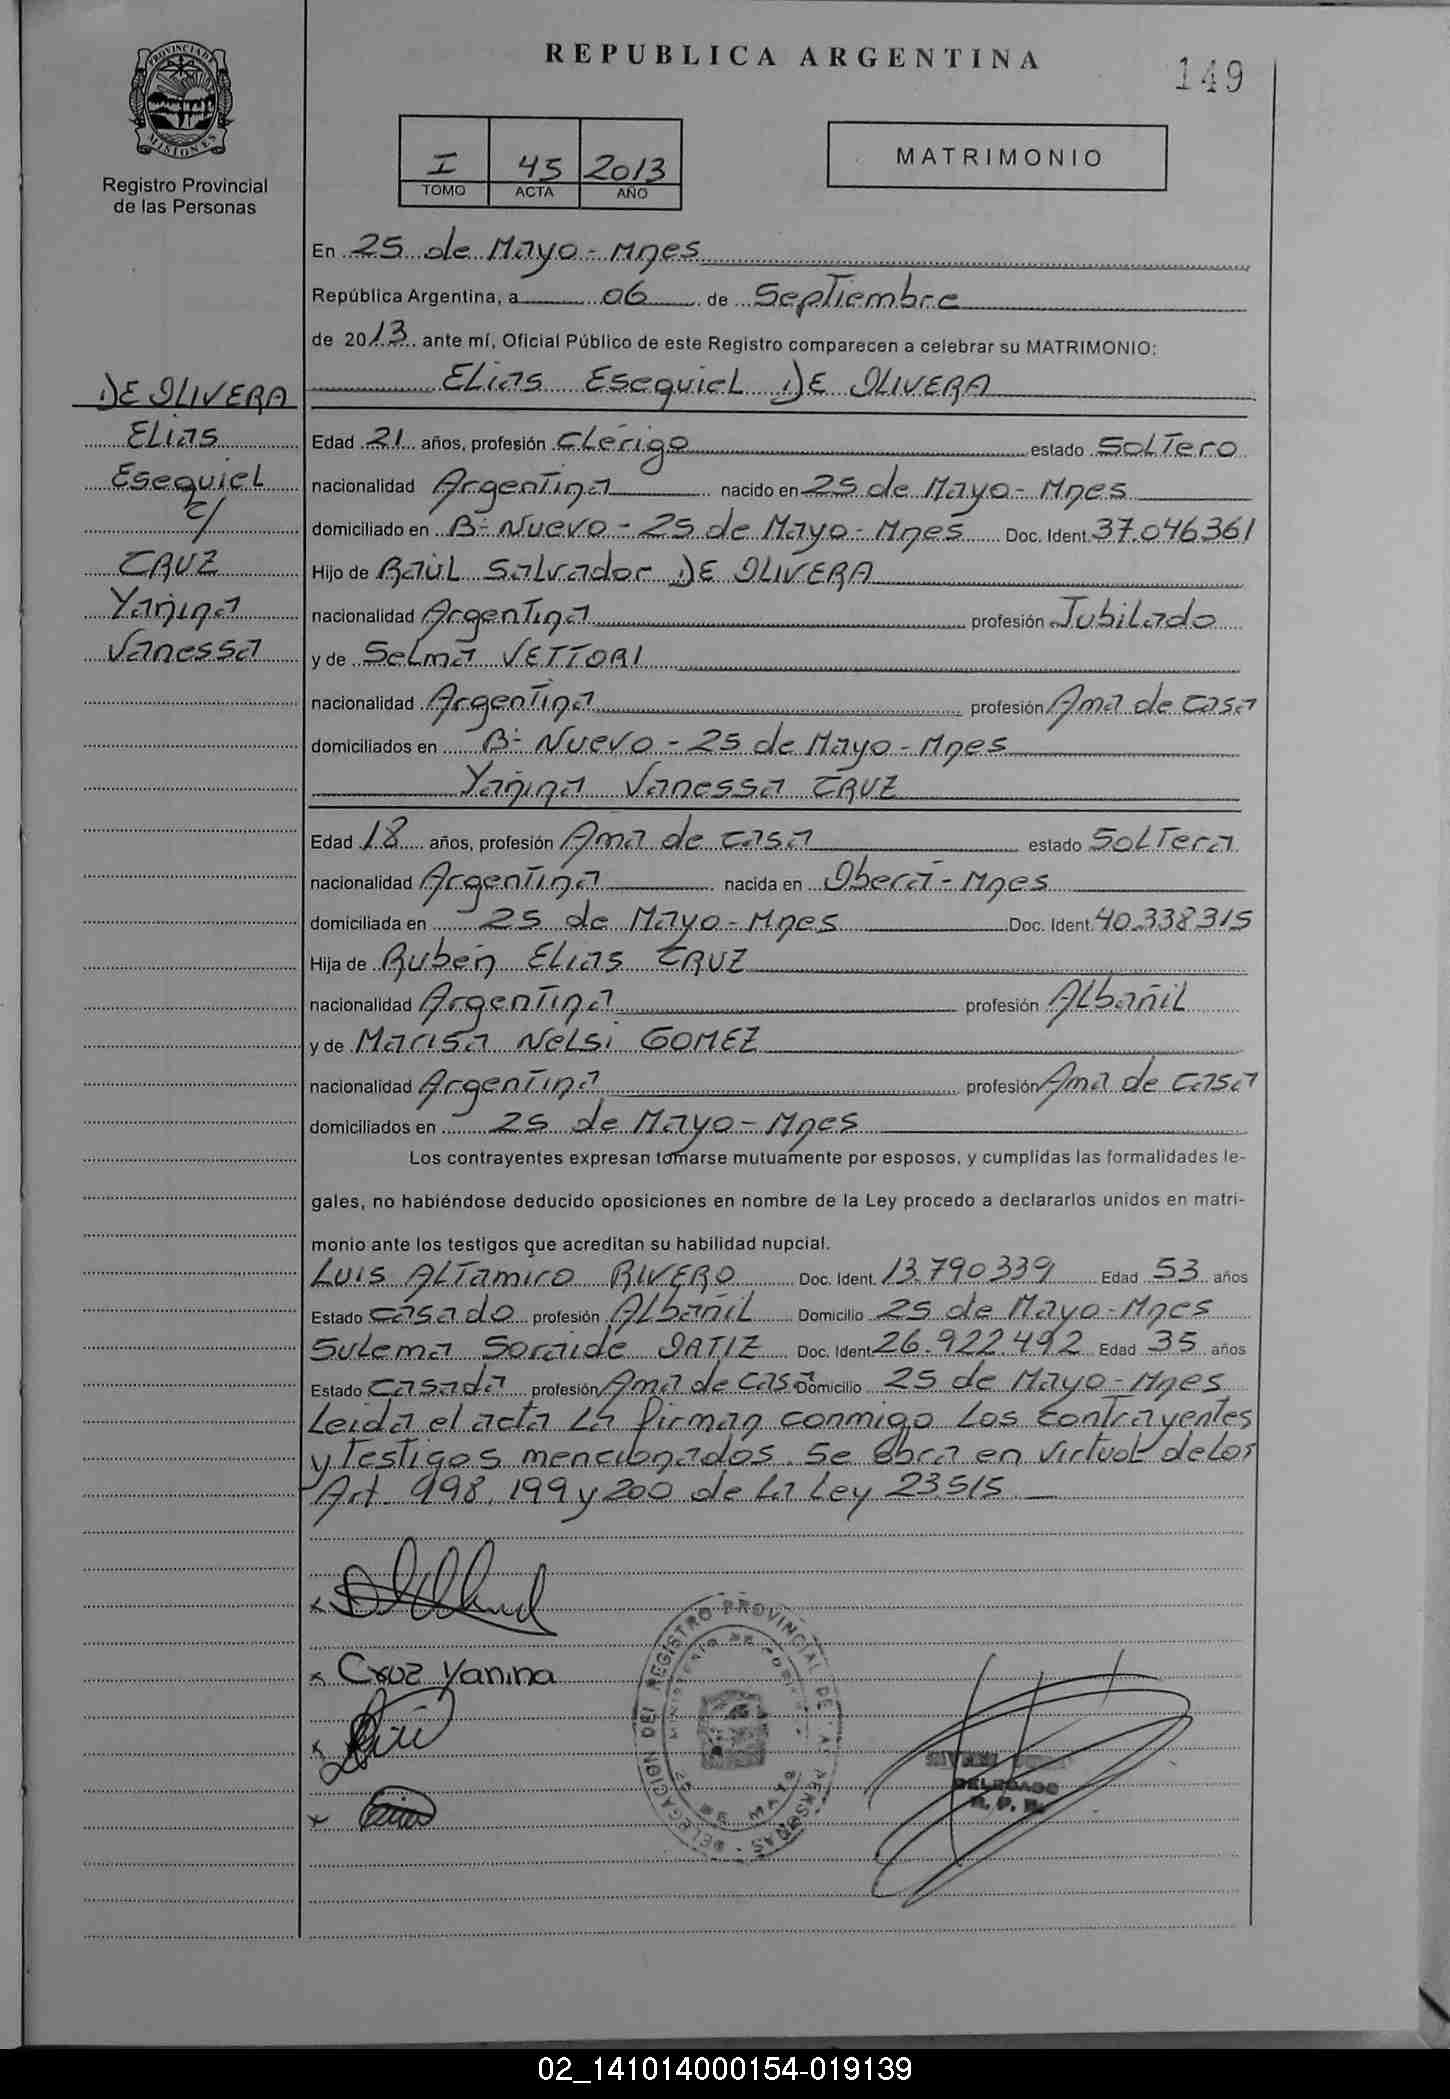 REPUBLICA ARGENTINA
149
PROVINCIA DE MISIONES
Registro Provincial
de las Personas
I 45 2013
TOMO ACTA AÑO
MATRIMONIO
En 25 de Mayo - Mnes
República Argentina, a 06 de Septiembre
de 2013 ante mí, Oficial Público de este Registro comparecen a celebrar su MATRIMONIO:
Elias Esequiel DE OLIVERA
DE OLIVERA
Elias
Esequiel
c/
CRUZ
Yanina
Vanessa
Edad 21 años, profesión Clérigo estado Soltero
nacionalidad Argentina nacido en 25 de Mayo - Mnes
domiciliado en Bº Nuevo - 25 de Mayo - Mnes Doc. Ident. 37.046361
Hijo de Raúl Salvador DE OLIVERA
nacionalidad Argentina profesión Jubilado
y de Selma VETTORI
nacionalidad Argentina profesión Ama de casa
domiciliados en Bº Nuevo - 25 de Mayo - Mnes
Yanina Vanessa CRUZ
Edad 18 años, profesión Ama de casa estado Soltera
nacionalidad Argentina nacida en Oberá - Mnes
domiciliada en 25 de Mayo - Mnes Doc. Ident. 40.338315
Hija de Rubén Elias CRUZ
nacionalidad Argentina profesión Albañil
y de Marisa Nelsi GOMEZ
nacionalidad Argentina profesión Ama de casa
domiciliados en 25 de Mayo - Mnes
Los contrayentes expresan tomarse mutuamente por esposos, y cumplidas las formalidades le-
gales, no habiéndose deducido oposiciones en nombre de la Ley procedo a declararlos unidos en matri-
monio ante los testigos que acreditan su habilidad nupcial.
Luis Altamiro RIVERO Doc. Ident. 13.790339 Edad 53 años
Estado casado profesión Albañil Domicilio 25 de Mayo - Mnes
Sulema Soraide ORTIZ Doc. Ident. 26.922.492 Edad 35 años
Estado casada profesión Ama de casa Domicilio 25 de Mayo - Mnes
Leida el acta la firman conmigo los contrayentes
y testigos mencionados. Se obra en virtud de los
Art. 998, 199 y 200 de la Ley 23.515
x
x Cruz Yanina
x
x
DELEGACION DEL REGISTRO PROVINCIAL DE LAS PERSONAS
DELEGADO
R. P. P.
02_141014000154-019139